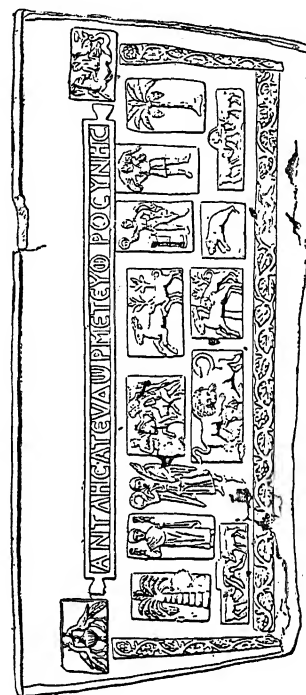 ΑΝΤΛΗCΑΤΕΥΔΩΡΜΕΤΕΥΦΡΟCΥΝΗC